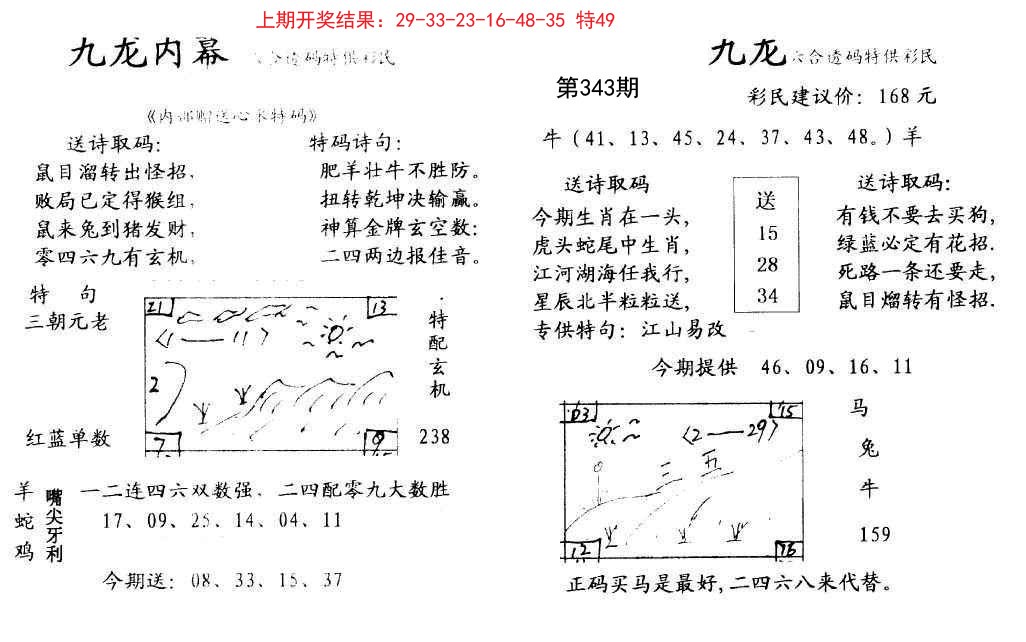 上期开奖结果：29-33-23-16-48-35 特49
九龙内幕
六合透码特供彩民
《内部赠送心水特码》
送诗取码：
鼠目溜转出怪招，
败局已定得猴组，
鼠来兔到猪发财，
零四六九有玄机，
特码诗句：
肥羊壮牛不胜防。
扭转乾坤决输赢。
神算金牌玄空数：
二四两边报佳音。
特 句
三朝元老
红蓝单数
21
13
〈1——11〉
2
7
9
特配玄机
238
羊
蛇
鸡
嘴尖牙利
一二连四六双数强．二四配零九大数胜
17、09、25、14、04、11
今期送：08、33、15、37
九龙六合透码特供彩民
第343期
彩民建议价：168元
牛（41、13、45、24、37、43、48。）羊
送诗取码
今期生肖在一头，
虎头蛇尾中生肖，
江河湖海任我行，
星辰北半粒粒送，
专供特句：江山易改
送
15
28
34
送诗取码：
有钱不要去买狗，
绿蓝必定有花招．
死路一条还要走，
鼠目熘转有怪招．
今期提供 46、09、16、11
03
15
〈2——29〉
三 五
12
马
兔
牛
159
正码买马是最好，二四六八来代替。